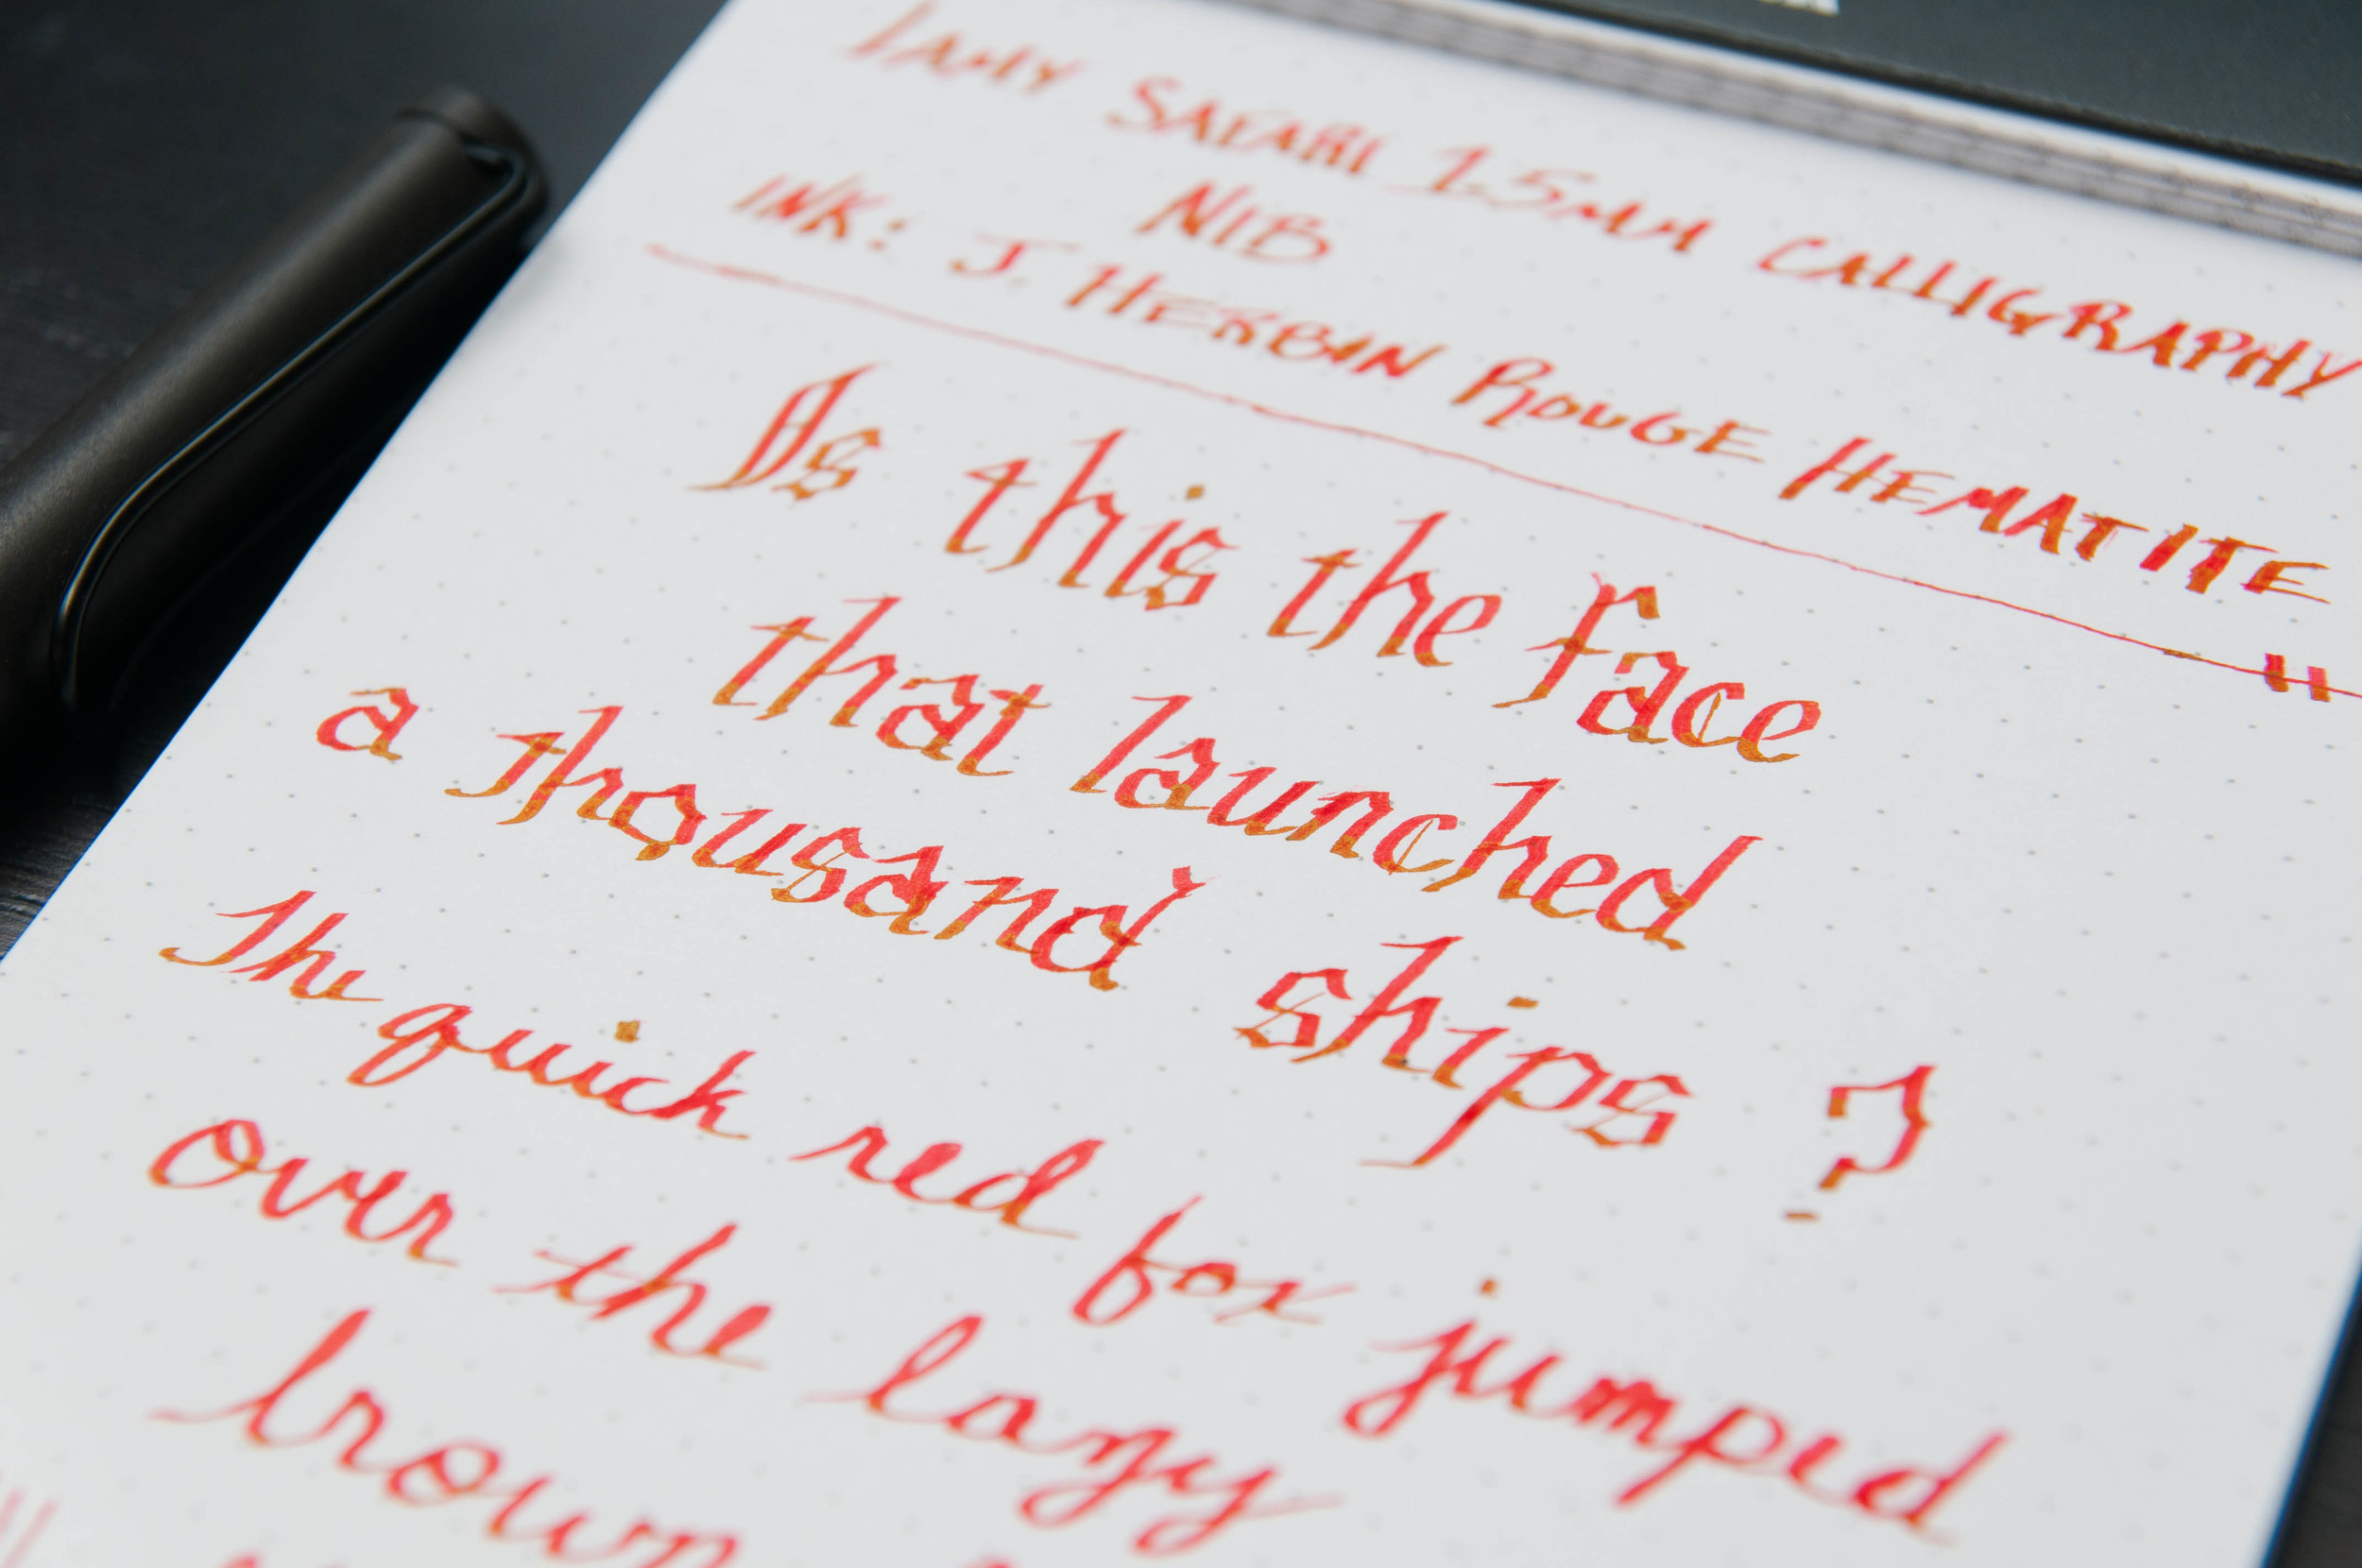 LAMY SAFARI 1.5MM CALLIGRAPHY
NIB
INK: J. HERBIN ROUGE HEMATITE
"
Is this the face
that launched
a thousand ships?
The quick red fox jumped
over the lazy
brown